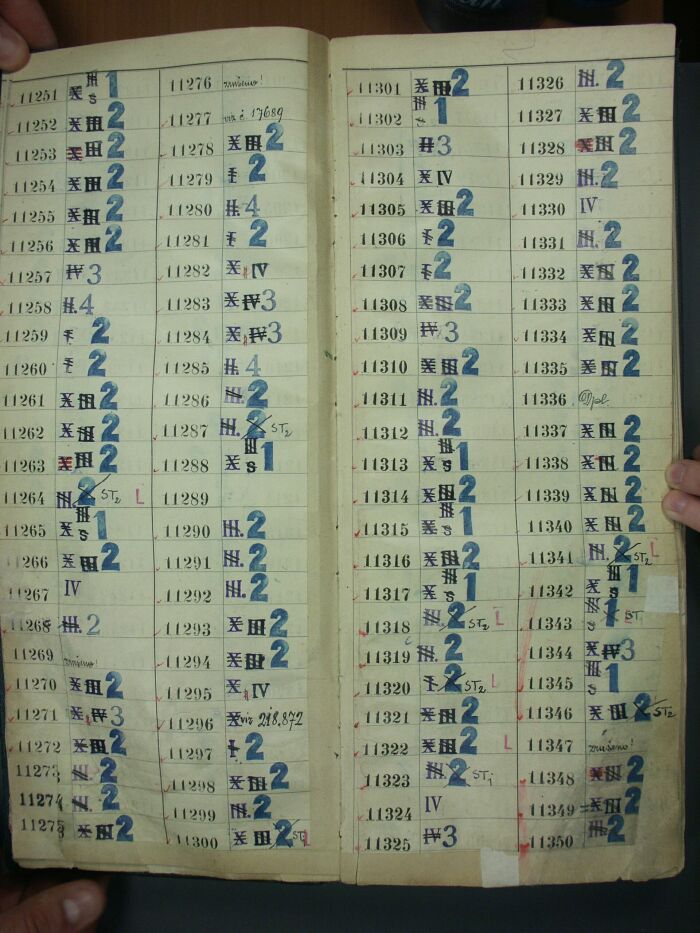 11251 X III S 1
11252 X III 2
11253 X III 2
11254 X III 2
11255 X III 2
11256 X III 2
11257 IV 3
11258 II. 4
11259 I 2
11260 I 2
11261 X III 2
11262 X III 2
11263 X III 2
11264 III. 2 ST2 L
11265 X III S 1
11266 X III 2
11267 IV
11268 III. 2
11269 zrušeno!
11270 X III 2
11271 X IV 3
11272 X III 2
11273 III. 2
11274 III. 2
11275 X III 2
11276 zrušeno!
11277 viz č. 17689
11278 X III 2
11279 I 2
11280 II. 4
11281 I 2
11282 X IV
11283 X IV 3
11284 X IV 3
11285 II. 4
11286 III. 2
11287 III. 2 ST2
11288 X III S 1
11289
11290 III. 2
11291 III. 2
11292 III. 2
11293 X III 2
11294 X III 2
11295 X IV
11296 X viz 218,872
11297 I 2
11298 X III 2
11299 III. 2
11300 X III 2 ST L
11301 X III 2
11302 III S 1
11303 II 3
11304 X IV
11305 X III 2
11306 I 2
11307 I 2
11308 X III 2
11309 IV 3
11310 X III 2
11311 III. 2
11312 III. 2
11313 X III S 1
11314 X III 2
11315 X III S 1
11316 X III 2
11317 X III S 1
11318 III. 2 ST2 L
11319 III. 2
11320 I 2 ST2 L
11321 X III 2
11322 X III 2 L
11323 III. 2 ST1
11324 IV
11325 IV 3
11326 III. 2
11327 X III 2
11328 X III 2
11329 III. 2
11330 IV
11331 III. 2
11332 X III 2
11333 X III 2
11334 X III 2
11335 X III 2
11336
11337 X III 2
11338 X III 2
11339 X III 2
11340 X III 2
11341 III. 2 ST2 L
11342 X III S 1
11343 III S 1 ST1
11344 X IV 3
11345 III S 1
11346 X III 2 ST2
11347 zrušeno!
11348 X III 2
11349 X III 2
11350 III 2